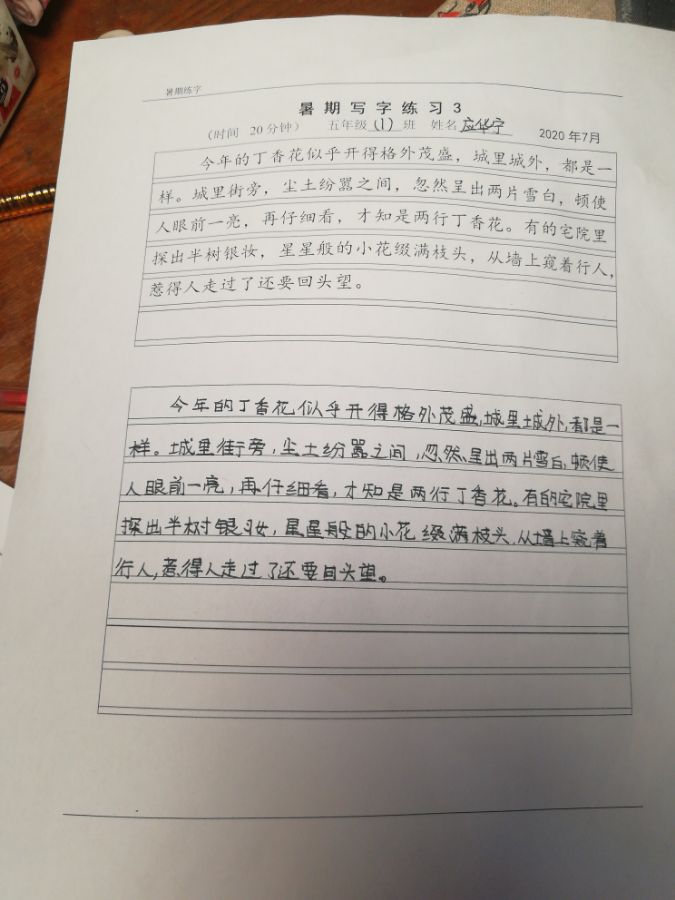 暑期练字
暑期写字练习3
(时间 20分钟) 五年级(1)班 姓名应华宁 2020年7月
今年的丁香花似乎开得格外茂盛，城里城外，都是一
样。城里街旁，尘土纷嚣之间，忽然呈出两片雪白，顿使
人眼前一亮，再仔细看，才知是两行丁香花。有的宅院里
探出半树银妆，星星般的小花缀满枝头，从墙上窥着行人，
惹得人走过了还要回头望。
今年的丁香花似乎开得格外茂盛,城里城外,都是一
样。城里街旁,尘土纷嚣之间,忽然呈出两片雪白,顿使
人眼前一亮,再仔细看,才知是两行丁香花。有的宅院里
探出半树银妆,星星般的小花缀满枝头,从墙上窥着
行人,惹得人走过了还要回头望。